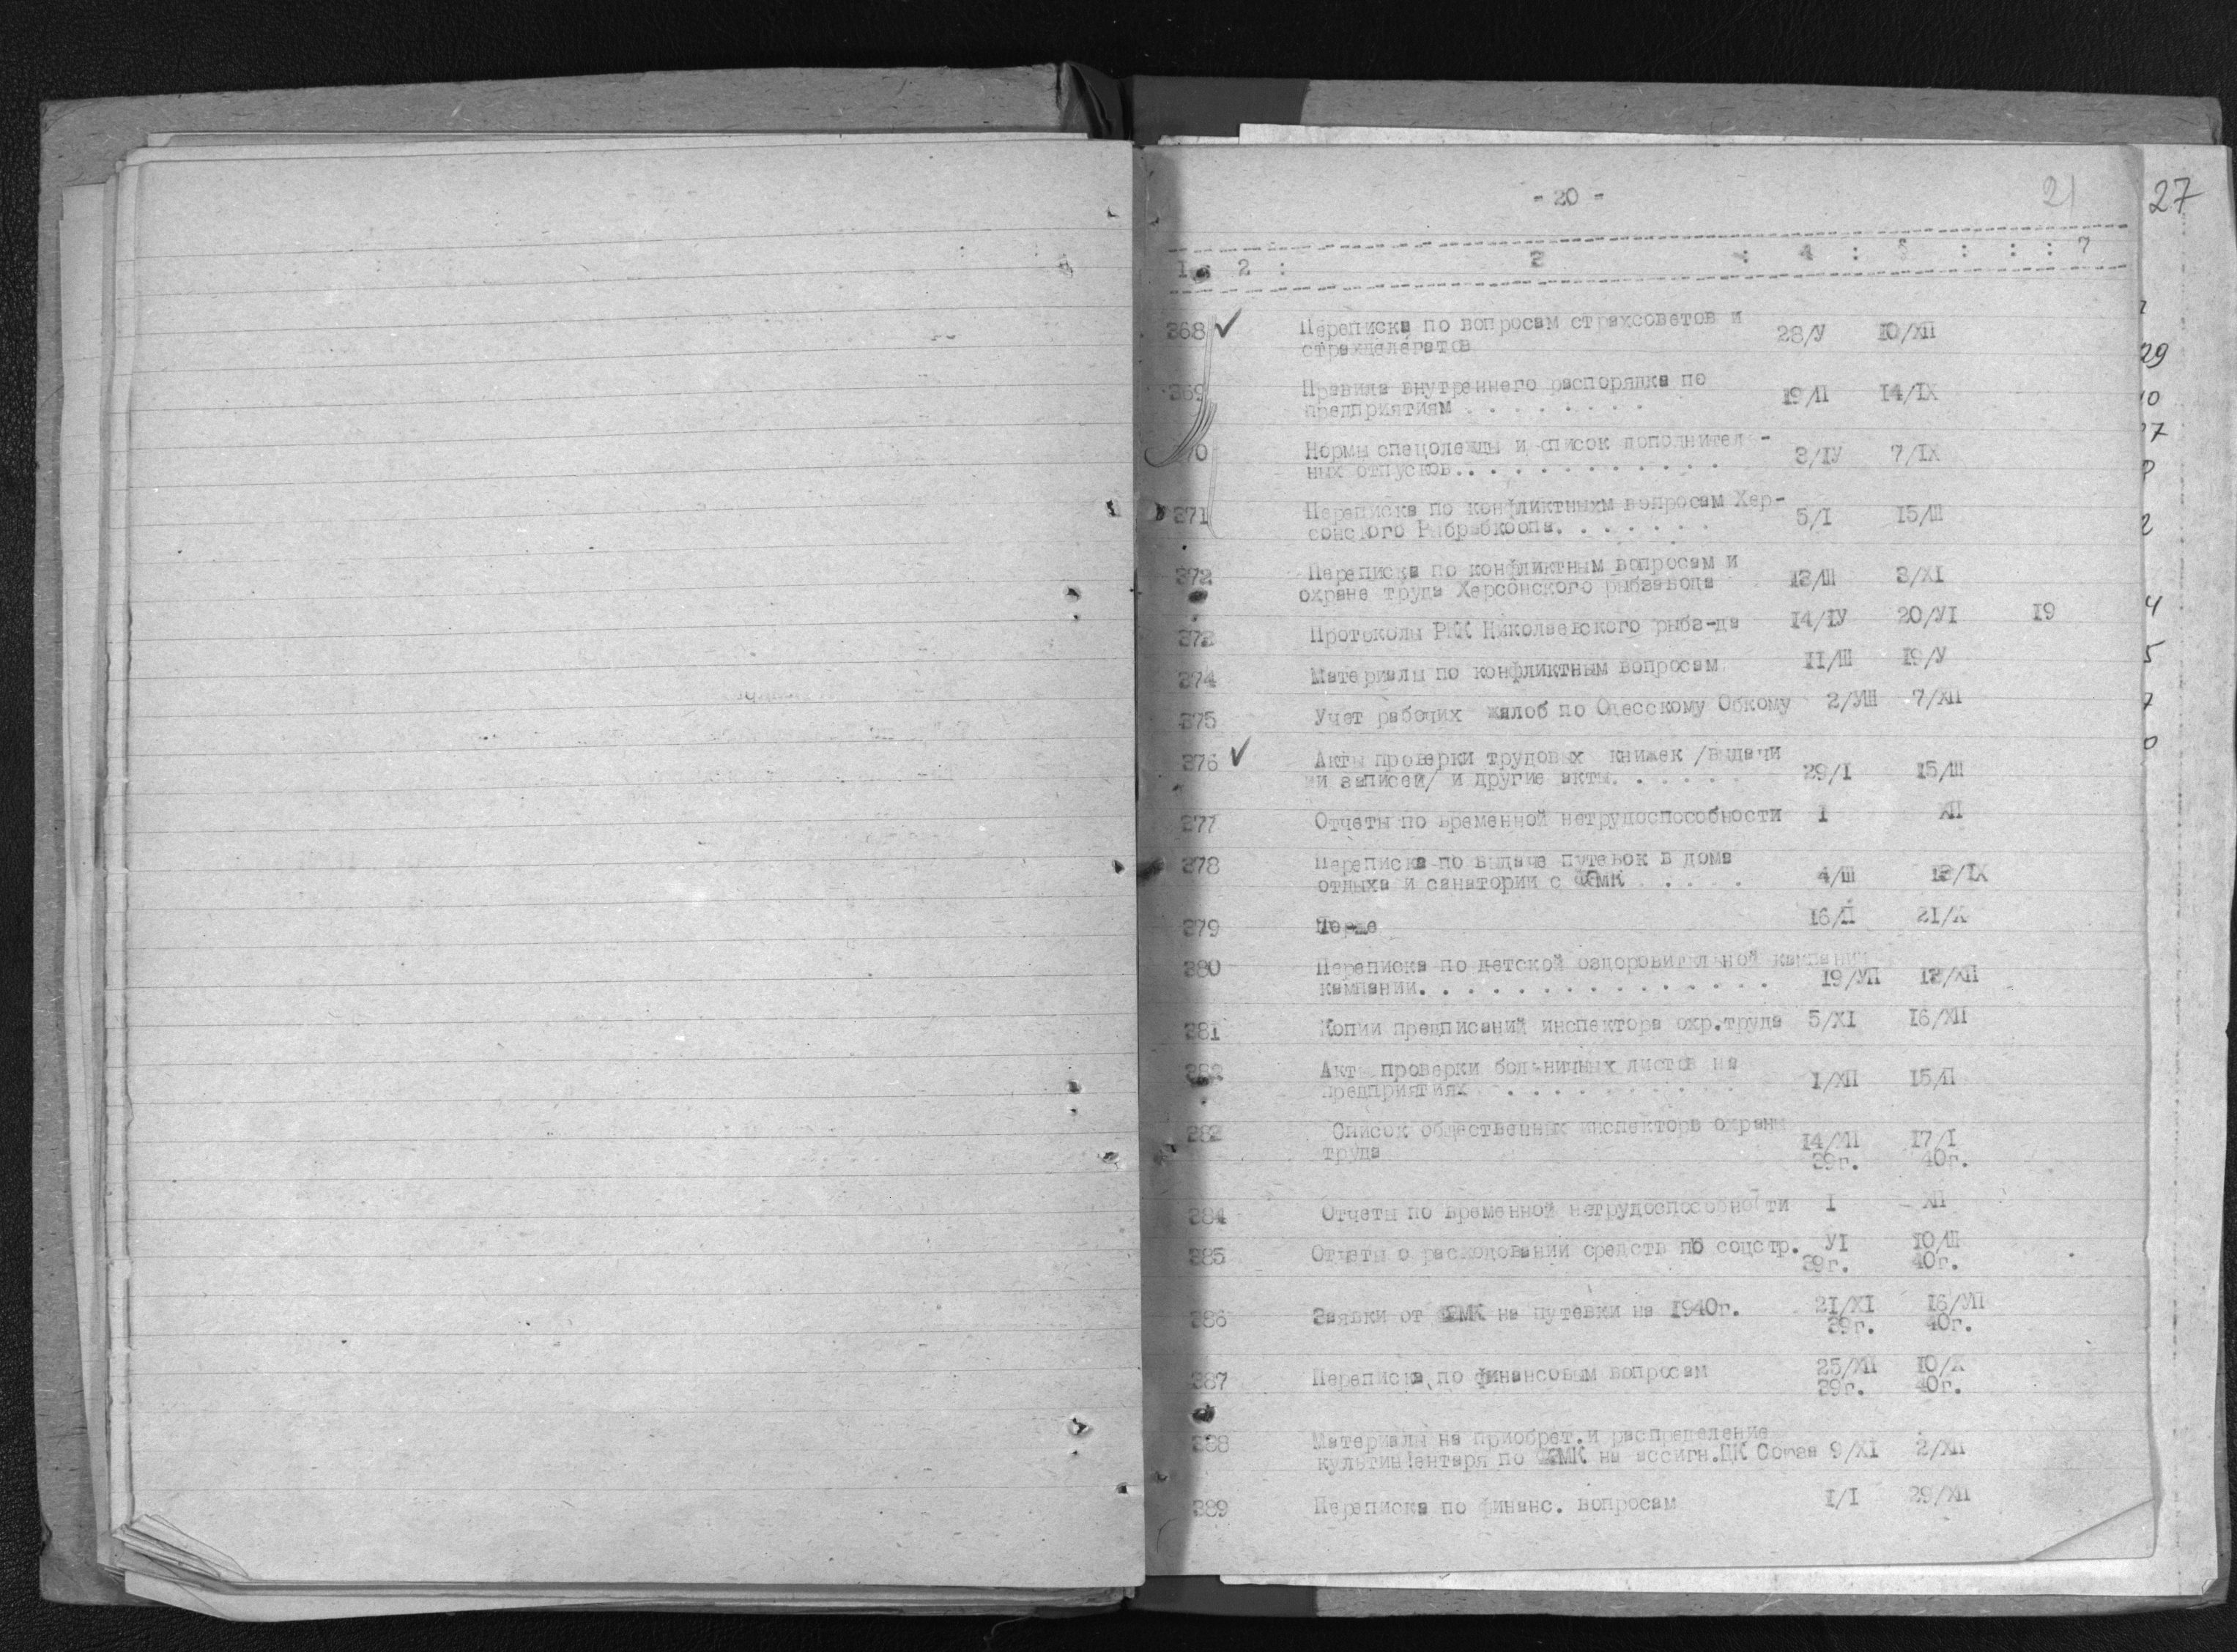 - 20 -
21
27
1 : 2 : 3 : 4 : 5 : : : 7
368 ✓ Переписка по вопросам страхсоветов и
страхделегатов 28/У 10/ХП
369 Правила внутреннего распорядка по
предприятиям . . . . . . . . 19/П 14/IX
370 Нормы спецодежды и список дополнитель-
ных отпусков. . . . . . . . . . . . 3/IУ 7/IX
371 Переписка по конфликтныхм вопросам Хер-
сонского Рыбрабкоопа. . . . . . . 5/I 15/Ш
372 Переписка по конфликтным вопросам и
охране труда Херсонского рыбзавода 13/Ш 3/XI
373 Протоколы РКК Николаевского рыбз-да 14/IУ 20/УI 19
374 Материалы по конфликтным вопросам 11/Ш 19/У
375 Учет рабочих жалоб по Одесскому Обкому 2/УШ 7/ХП
376 ✓ Акты проверки трудовых книжек /выдачи
и записей/ и другие акты. . . . . . 29/I 15/Ш
377 Отчеты по временной нетрудоспособности I ХП
378 Переписка по выдаче путевок в дома
отдыха и санатории с ФЗМК . . . . 4/Ш 13/IX
379 То-же 16/П 21/X
380 Переписка по детской оздоровительной кампании
кампании. . . . . . . . . . . . . . . 19/УП 13/ХП
381 Копии предписаний инспектора охр.труда 5/XI 16/ХП
382 Акты проверки больничных листов на
предприятиях . . . . . . . . . . 1/ХП 15/П
383 Список общественных инспекторв охраны
труда 14/ХП 17/I
39г. 40г.
384 Отчеты по временной нетрудоспособности I - ХП
385 Отчеты о расходовании средств по соцстр. УI 10/Ш
39г. 40г.
386 Заявки от ФЗМК на путевки на 1940г. 21/XI 16/УП
39г. 40г.
387 Переписка по финансовым вопросам 25/ХП 10/X
39г. 40г.
388 Материалы на приобрет.и распределение
культинвентаря по ФЗМК на ассигн.ЦК Союза 9/XI 2/ХП
389 Переписка по финанс. вопросам 1/I 29/ХП